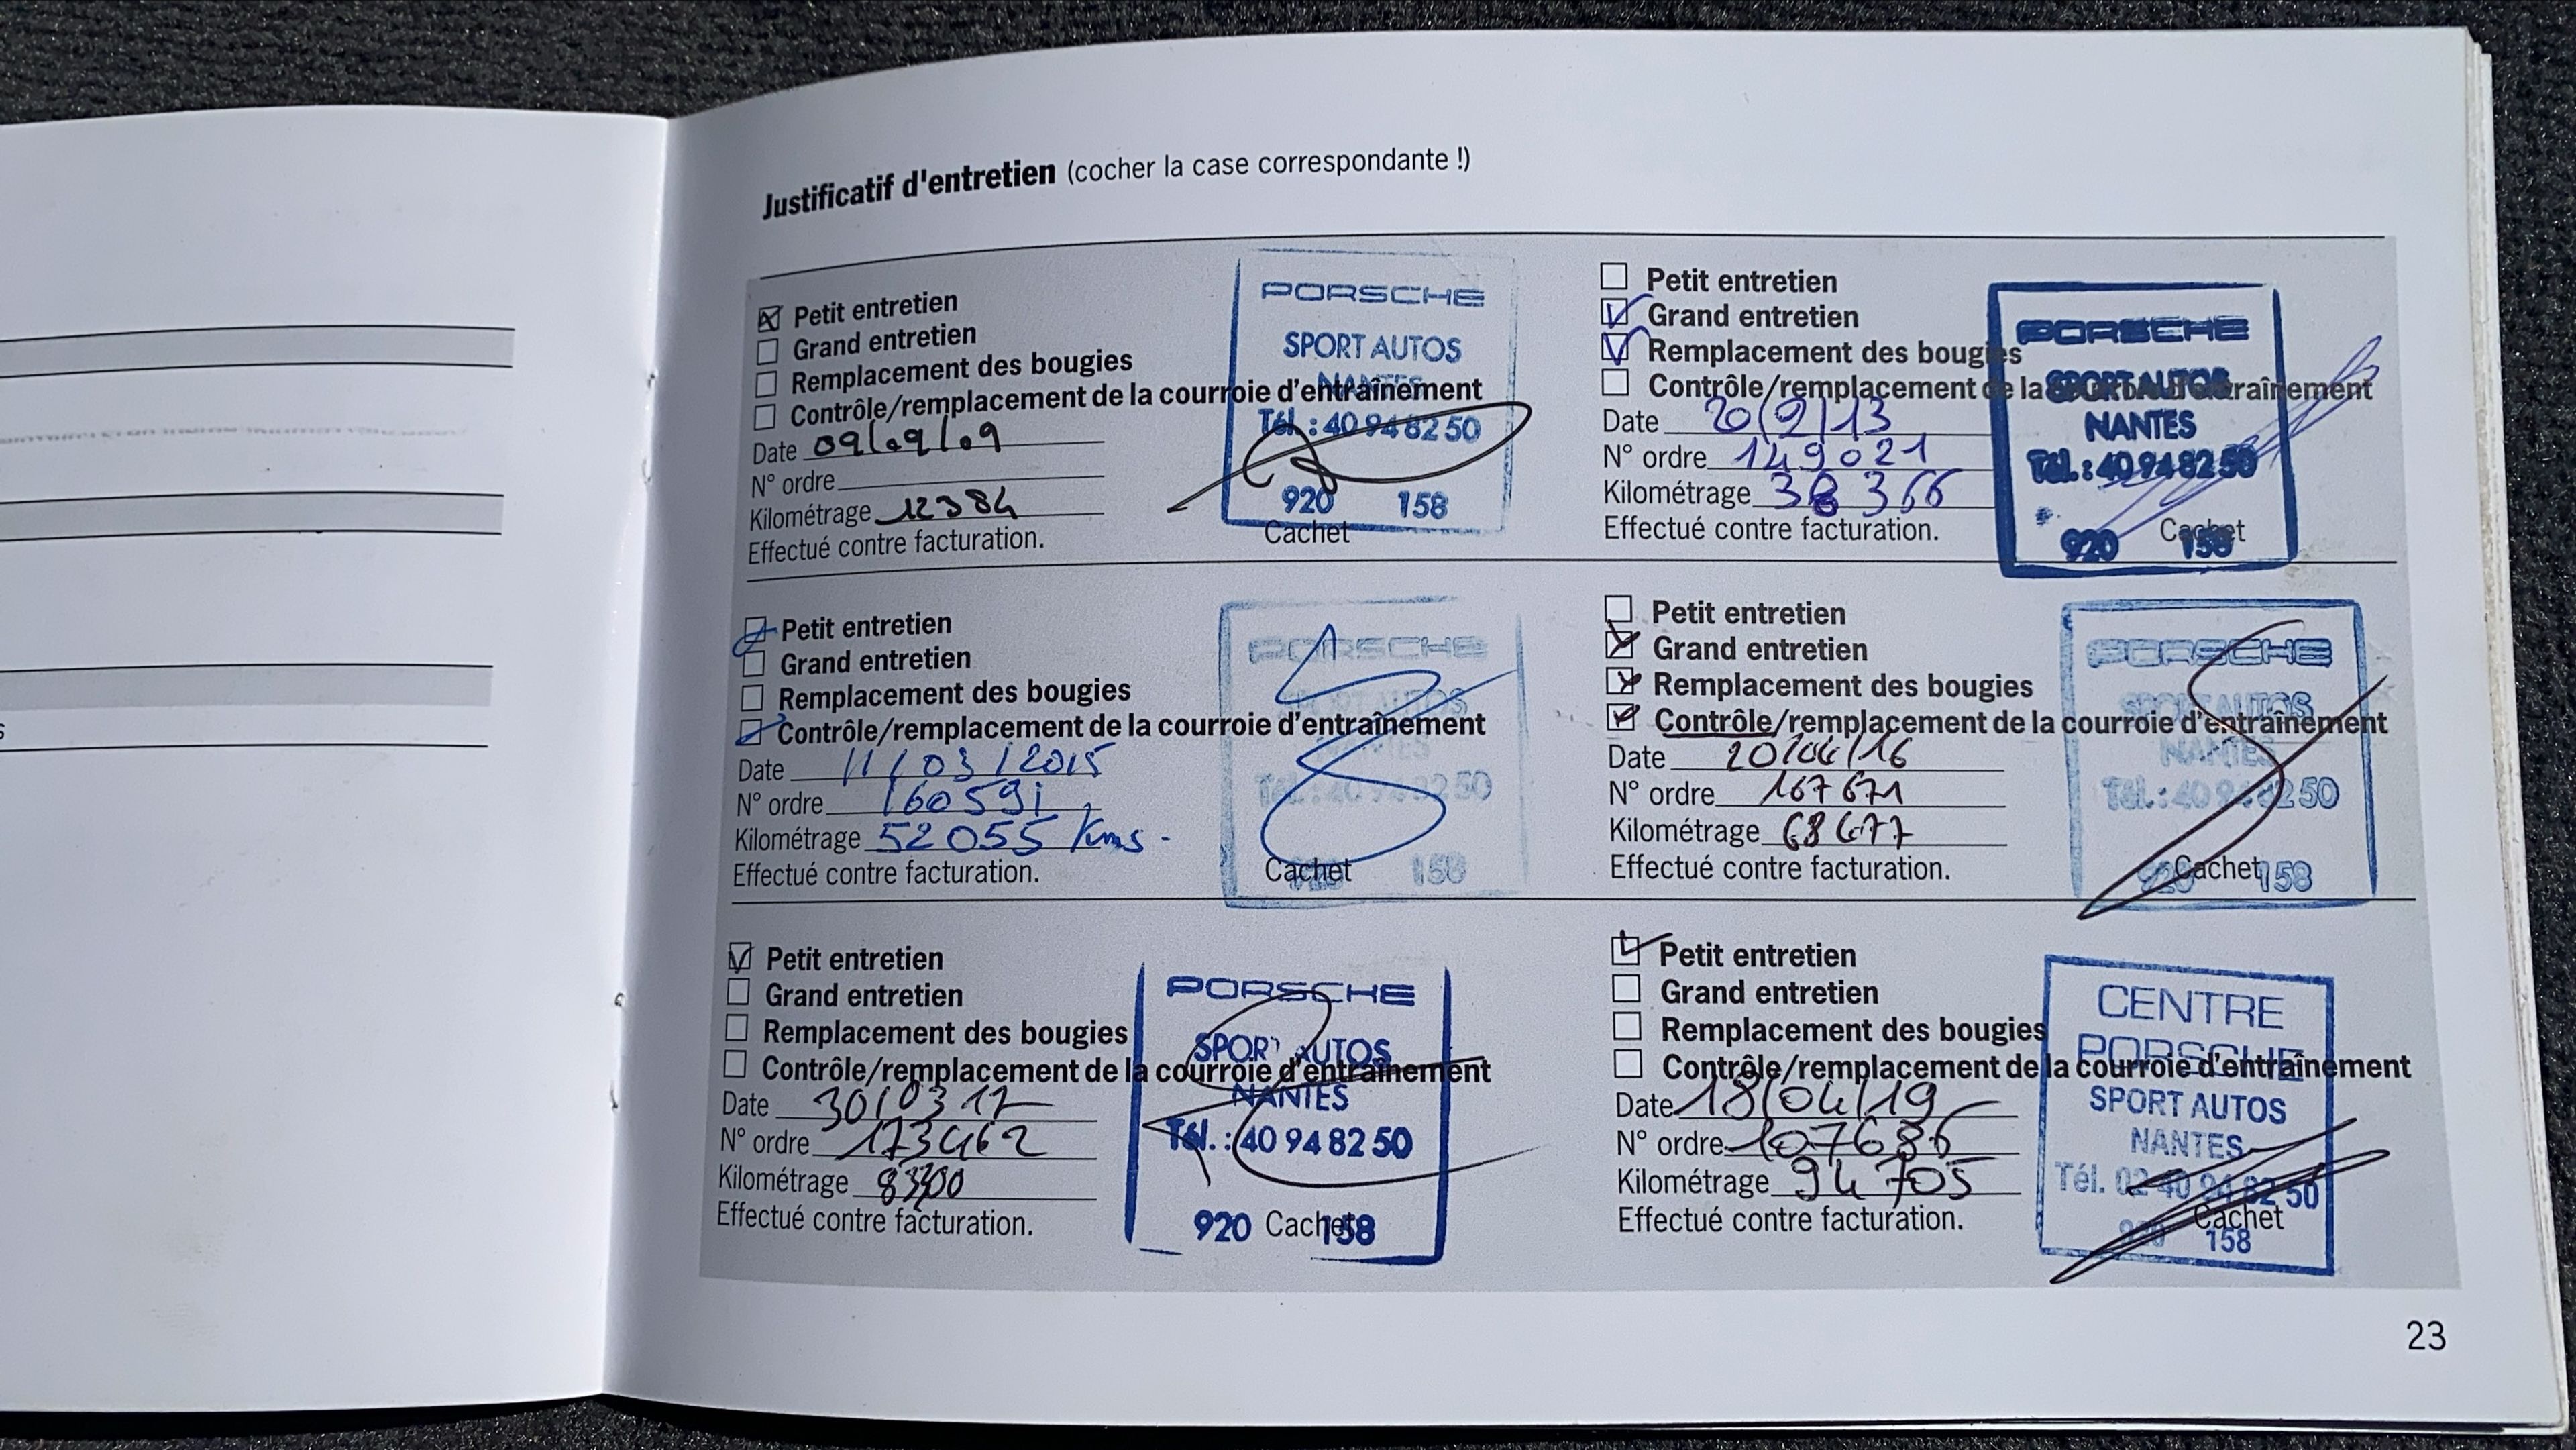 Justificatif d'entretien (cocher la case correspondante !)
Petit entretien
Grand entretien
Remplacement des bougies
Contrôle/remplacement de la courroie d'entraînement
Date 09/09/09
N° ordre
Kilométrage 12384
Effectué contre facturation.
PORSCHE
SPORT AUTOS
NANTES
Tél.: 40 94 82 50
920 158
Cachet
Petit entretien
Grand entretien
Remplacement des bougies
Contrôle/remplacement de la courroie d'entraînement
Date 20/9/13
N° ordre 149021
Kilométrage 38366
Effectué contre facturation.
PORSCHE
SPORT AUTOS
NANTES
Tél.: 40 94 82 50
920 158
Cachet
Petit entretien
Grand entretien
Remplacement des bougies
Contrôle/remplacement de la courroie d'entraînement
Date 11/03/2015
N° ordre 160591
Kilométrage 52055 Kms.
Effectué contre facturation.
PORSCHE
SPORT AUTOS
NANTES
Tél.: 40 94 82 50
158
Cachet
Petit entretien
Grand entretien
Remplacement des bougies
Contrôle/remplacement de la courroie d'entraînement
Date 20/04/16
N° ordre 167671
Kilométrage
Effectué contre facturation.
PORSCHE
SPORT AUTOS
NANTES
Tél.: 40 94 82 50
920 158
Cachet
Petit entretien
Grand entretien
Remplacement des bougies
Contrôle/remplacement de la courroie d'entraînement
Date 30/03 17
N° ordre 173462
Kilométrage
Effectué contre facturation.
PORSCHE
SPORT AUTOS
NANTES
Tél.: 40 94 82 50
920 158
Cachet
Petit entretien
Grand entretien
Remplacement des bougies
Contrôle/remplacement de la courroie d'entraînement
Date 18/04/19
N° ordre 107686
Kilométrage 94705
Effectué contre facturation.
CENTRE
PORSCHE
SPORT AUTOS
NANTES
Tél. 02 40 94 82 50
920 158
Cachet
23